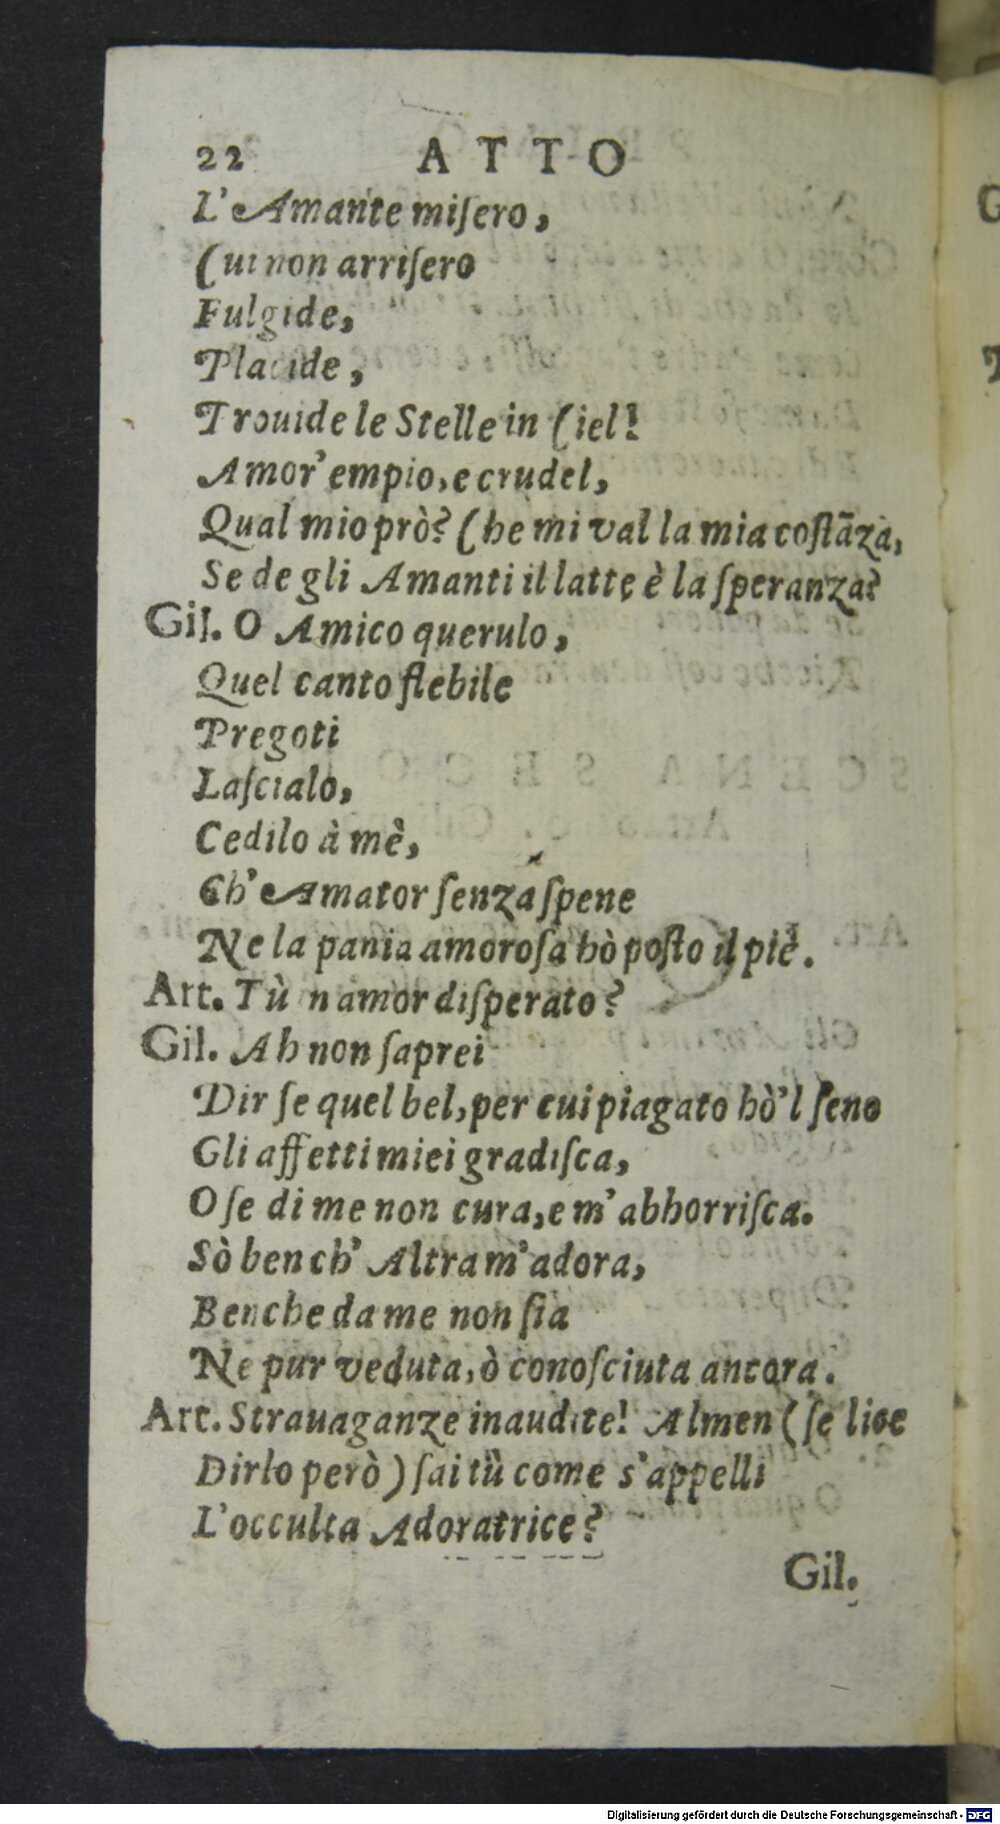 22 ATTO
L'Amante miſero,
Cui non arriſero
Fulgide,
Placide,
Trouide le Stelle in Ciel!
Amor' empio, e crudel,
Qual mio prò? Che mi val la mia coſtāza,
Se de gli Amanti il latte è la ſperanza?
Gil. O Amico querulo,
Quel canto flebile
Pregoti
Laſcialo,
Cedilo à mè,
Ch'Amator ſenza ſpene
Ne la pania amoroſa hò poſto il piè.
Art. Tù n amor diſperato?
Gil. Ah non ſaprei
Dir ſe quel bel, per cui piagato hò'l ſeno
Gli affetti miei gradiſca,
O ſe di me non cura, e m'abhorriſca.
Sò ben ch' Altra m'adora,
Benche da me non ſia
Ne pur veduta, ò conoſciuta ancora.
Art. Strauaganze inaudite! Almen (ſe lice
Dirlo però) ſai tù come s'appelli
L'occulta Adoratrice?
Gil.
Digitalisierung gefördert durch die Deutsche Forschungsgemeinschaft - DFG